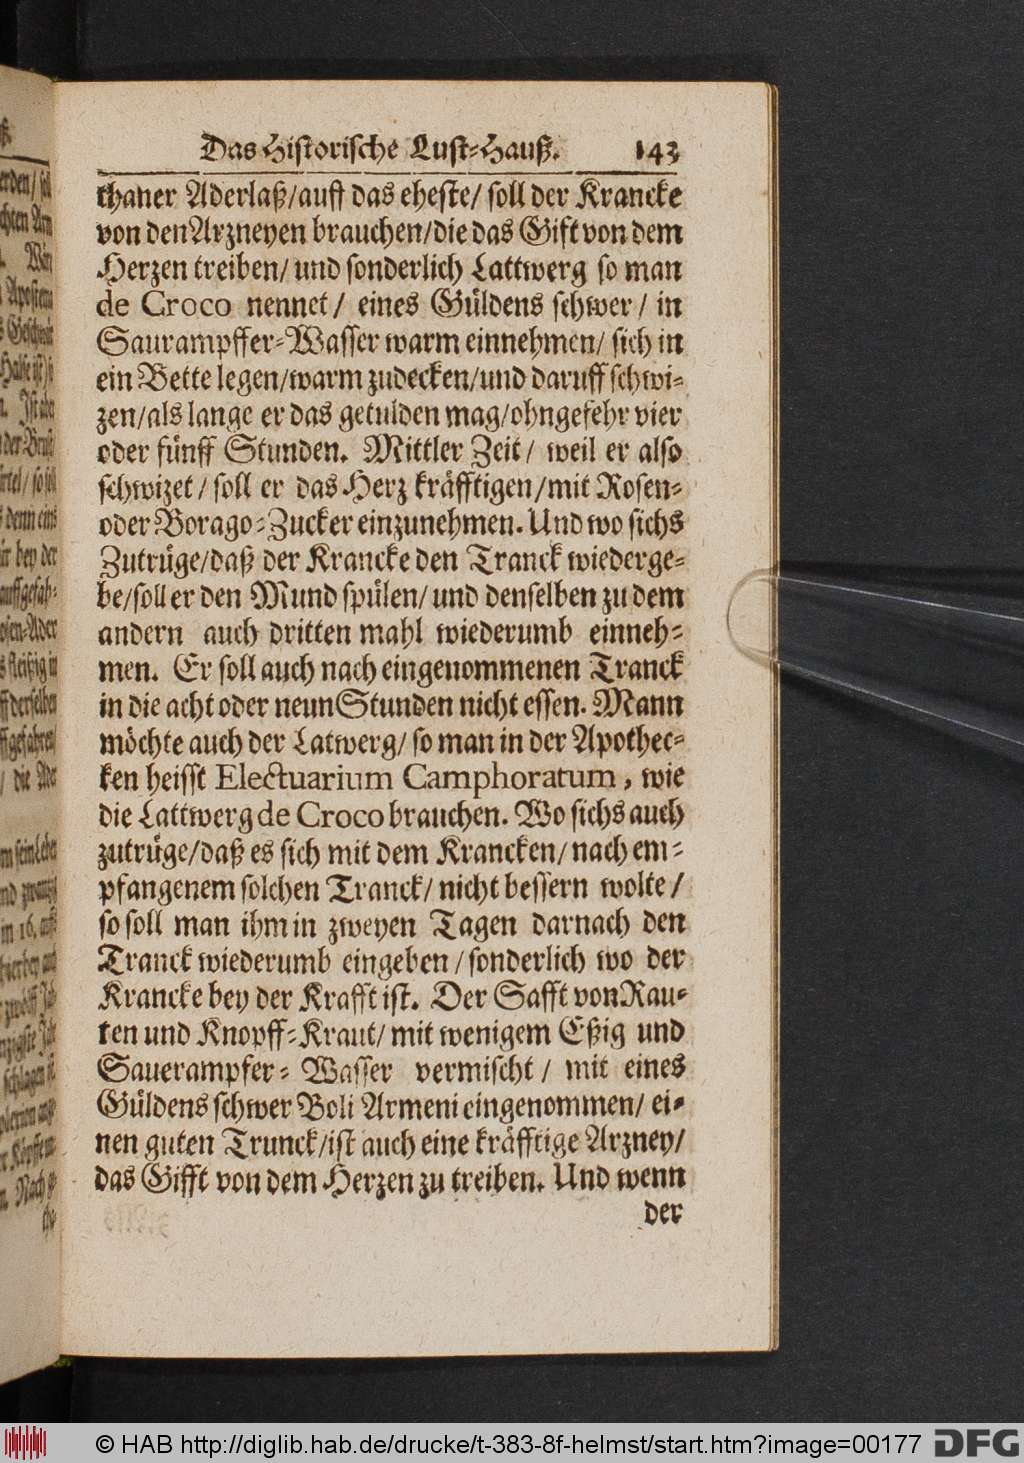 Das Historische Lust-Hauß. 143
thaner Aderlaß/auff das eheste/ soll der Krancke
von den Arzneyen brauchen/die das Gift von dem
Herzen treiben/ und sonderlich Lattwerg so man
de Croco nennet/ eines Güldens schwer/ in
Saurampffer-Wasser warm einnehmen/ sich in
ein Bette legen/warm zudecken/und daruff schwi-
zen/als lange er das getulden mag/ohngefehr vier
oder fünff Stunden. Mittler Zeit/ weil er also
schwizet/ soll er das Herz kräfftigen/mit Rosen-
oder Borago-Zucker einzunehmen. Und wo sichs
Zutrüge/daß der Krancke den Tranck wiederge-
be/soll er den Mund spülen/ und denselben zu dem
andern auch dritten mahl wiederumb einneh-
men. Er soll auch nach eingenommenen Tranck
in die acht oder neun Stunden nicht essen. Mann
möchte auch der Latwerg/ so man in der Apothec-
ken heisst Electuarium Camphoratum, wie
die Lattwerg de Croco brauchen. Wo sichs auch
zutrüge/daß es sich mit dem Krancken/ nach em-
pfangenem solchen Tranck/ nicht bessern wolte/
so soll man ihm in zweyen Tagen darnach den
Tranck wiederumb eingeben/ sonderlich wo der
Krancke bey der Krafft ist. Der Safft von Rau-
ten und Knopff-Kraut/ mit wenigem Eßig und
Sauerampfer- Wasser vermischt/ mit eines
Güldens schwer Boli Armeni eingenommen/ ei-
nen guten Trunck/ist auch eine kräfftige Arzney/
das Gifft von dem Herzen zu treiben. Und wenn
der
© HAB http://diglib.hab.de/drucke/t-383-8f-helmst/start.htm?image=00177 DFG